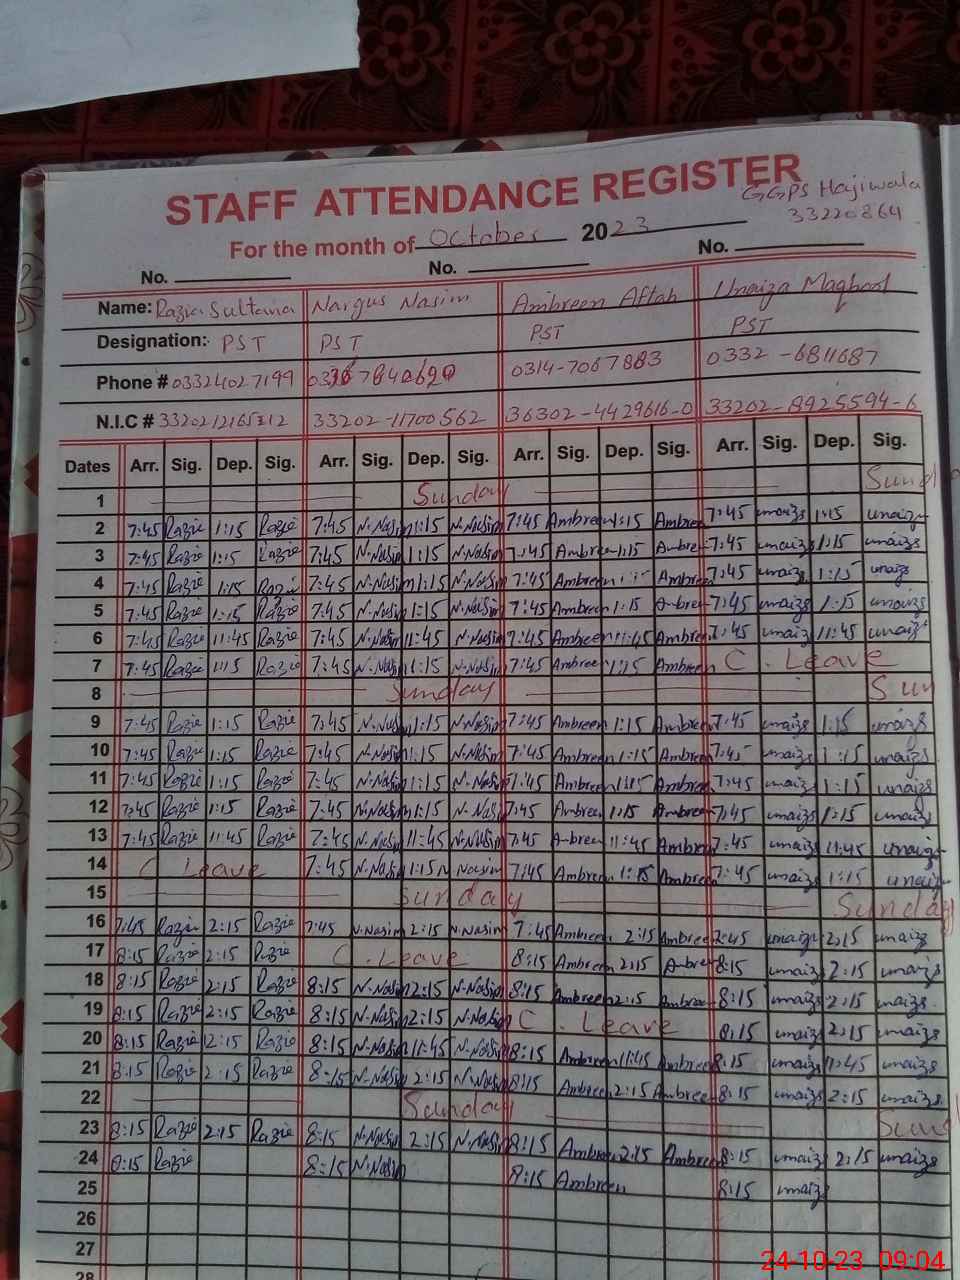 STAFF ATTENDANCE REGISTER
GGPS Hajiwala
33220864
For the month of October 2023
No. No. No.
Name: Razia Sultana Nargus Nasim Ambreen Aftab Unaiza Maqbool
Designation: PST PST PST PST
Phone # 03324027199 0314-7067883 0332-6811687
N.I.C # 33202-11700562 36302-4429616-0 33202-8925594-6
Dates Arr. Sig. Dep. Sig. Arr. Sig. Dep. Sig. Arr. Sig. Dep. Sig. Arr. Sig. Dep. Sig.
1 Sunday Sund
2 7:45 Razie 1:15 Razie 7:45 N.Nasim 1:15 N.Nasim 7:45 Ambreen 1:15 Ambreen 7:45 unaiza 1:15 unaiza
3 7:45 Razie 1:15 Razie 7:45 N.Nasim 1:15 N.Nasim 7:45 Ambreen 1:15 Ambreen 7:45 unaiza 1:15 unaiza
4 7:45 Razie 1:15 Razie 7:45 N.Nasim 1:15 N.Nasim 7:45 Ambreen Ambreen 7:45 unaiza 1:15 unaiza
5 7:45 Razie 1:15 Razie 7:45 N.Nasim 1:15 N.Nasim 7:45 Ambreen 1:15 Ambreen 7:45 unaiza 1:15 unaiza
6 7:45 Razie 11:45 Razie 7:45 N.Nasim 11:45 N.Nasim 7:45 Ambreen 11:45 Ambreen 7:45 unaiza 11:45 unaiza
7 7:45 Razie 1:15 Razie 7:45 N.Nasim 1:15 N.Nasim 7:45 Ambreen 1:15 Ambreen C. Leave
8 Sunday Sun
9 7:45 Razie 1:15 Razie 7:45 N.Nasim 1:15 N.Nasim 7:45 Ambreen 1:15 Ambreen 7:45 unaiza 1:15 unaiza
10 7:45 Razie 1:15 Razie 7:45 N.Nasim 1:15 N.Nasim 7:45 Ambreen 1:15 Ambreen 7:45 unaiza 1:15 unaiza
11 7:45 Razie 1:15 Razie 7:45 N.Nasim 1:15 N.Nasim 7:45 Ambreen 1:15 Ambreen 7:45 unaiza 1:15 unaiza
12 7:45 Razie 1:15 Razie 7:45 N.Nasim 1:15 N.Nasim 7:45 Ambreen 1:15 Ambreen 7:45 unaiza 1:15 unaiza
13 7:45 Razie 11:45 Razie 7:45 N.Nasim 11:45 N.Nasim 7:45 Ambreen 11:45 Ambreen 7:45 unaiza 11:45 unaiza
14 C Leave 7:45 N.Nasim 1:15 N.Nasim 7:45 Ambreen 1:15 Ambreen 7:45 unaiza 1:15 unaiza
15 Sunday Sunday
16 7:45 Razie 2:15 Razie 7:45 N.Nasim 2:15 N.Nasim 7:45 Ambreen 2:15 Ambreen 7:45 unaiza 2:15 unaiza
17 8:15 Razie 2:15 Razie C. Leave 8:15 Ambreen 2:15 Ambreen 8:15 unaiza 2:15 unaiza
18 8:15 Razie 2:15 Razie 8:15 N.Nasim 2:15 N.Nasim 8:15 Ambreen 2:15 Ambreen 8:15 unaiza 2:15 unaiza
19 8:15 Razie 2:15 Razie 8:15 N.Nasim 2:15 N.Nasim C. Leave 8:15 unaiza 2:15 unaiza
20 8:15 Razie 12:15 Razie 8:15 N.Nasim 11:45 N.Nasim 8:15 Ambreen 11:45 Ambreen 8:15 unaiza 11:45 unaiza
21 8:15 Razie 2:15 Razie 8:15 N.Nasim 2:15 N.Nasim 8:15 Ambreen 2:15 Ambreen 8:15 unaiza 2:15 unaiza
22 Sunday Sund
23 8:15 Razie 2:15 Razie 8:15 N.Nasim 2:15 N.Nasim 8:15 Ambreen 2:15 Ambreen 8:15 unaiza 2:15 unaiza
24 8:15 Razie 8:15 N.Nasim 8:15 Ambreen 8:15 unaiza
25
26
27
28
24-10-23 09:04